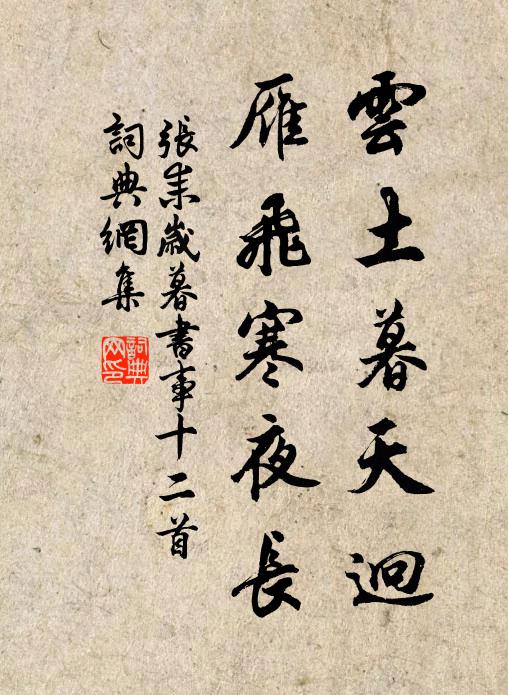 雲土暮天迥
雁飛寒夜長
張耒歲暮書事十二首
詞典網集
詞典
网印